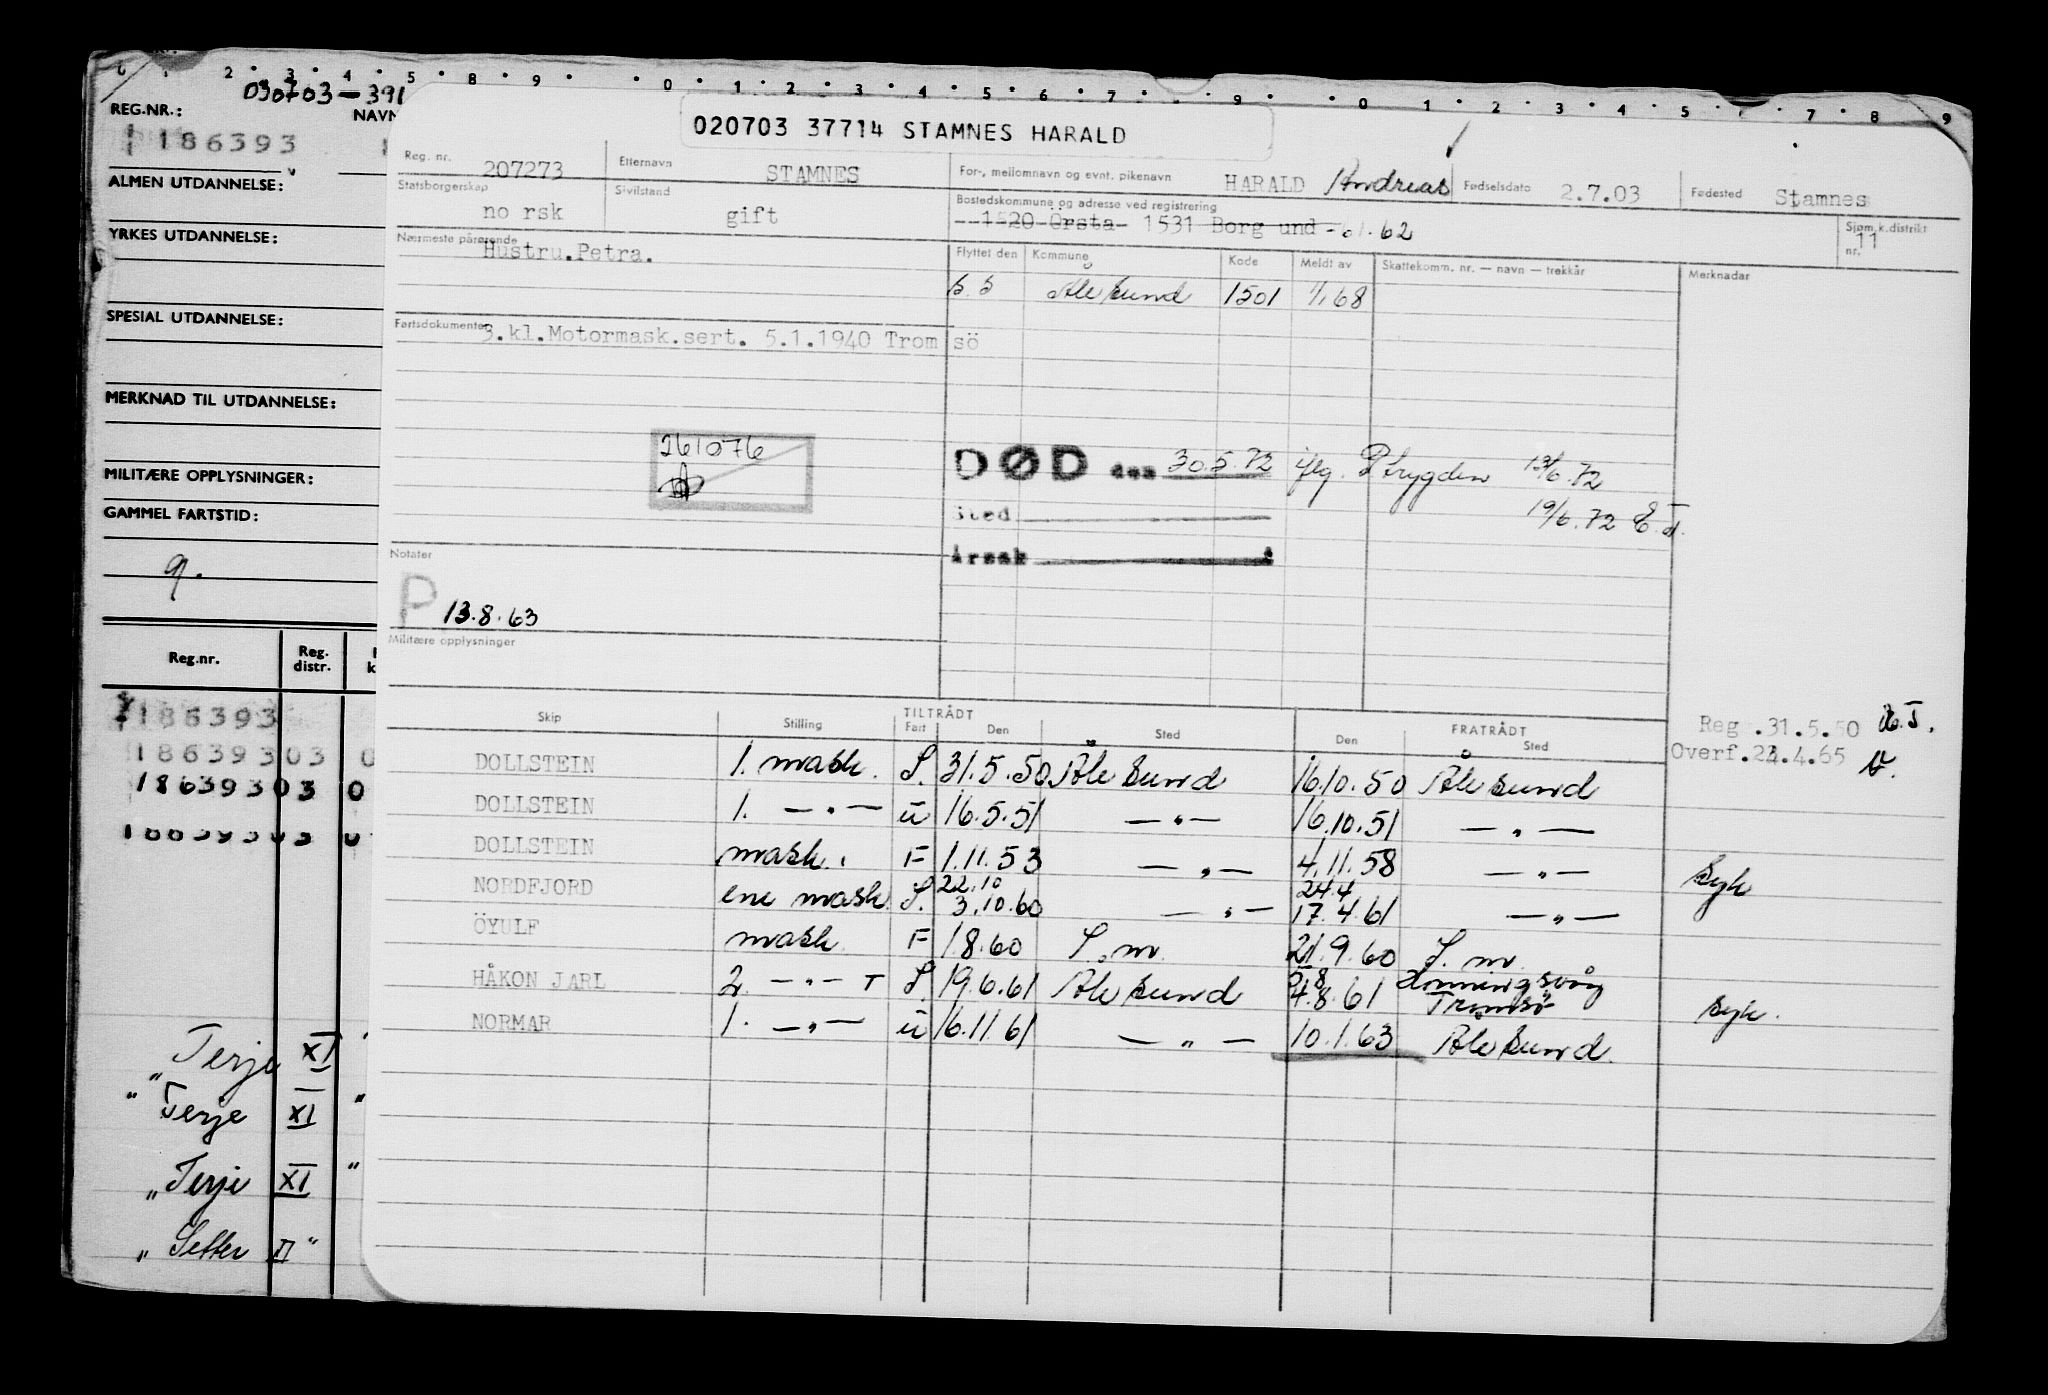 0 1 2 3 4 5 8 9 0 1 2 3 4 5 6 7 9 0 1 2 3 4 5 7 8 9
REG.NR.: 030703-391
NAVN
186393
ALMEN UTDANNELSE:
YRKES UTDANNELSE:
SPESIAL UTDANNELSE:
MERKNAD TIL UTDANNELSE:
MILITÆRE OPPLYSNINGER:
GAMMEL FARTSTID:
9.
Reg.nr. Reg. distr.
186393
18639303 0
18639303 0
18639303 0
" Terje XI "
" Terje XI "
" Terje XI "
" Setter II "
020703 37714 STAMNES HARALD
Reg. nr. 207273 Etternavn STAMNES For-, mellomnavn og evnt. pikenavn HARALD Andreas Fødselsdato 2.7.03 Fødested Stamnes
Statsborgerskap no rsk Sivilstand gift Bostedskommune og adresse ved registrering 1520 Örsta 1531 Borg und -61.62 Sjøm.k.distrikt nr. 11
Nærmeste pårørende Hustru.Petra.
Flyttet den Kommune Kode Meldt av Skattekomm. nr. — navn — trekkår Merknader
Ålesund 1501 1/1 68
Fartsdokumenter 3.kl.Motormask.sert. 5.1.1940 Trom sö
261076
DØD den 30.5.72 iflg. P.trygden 13/6.72
Sted 19/6.72
Årsak
Notater
P 13.8.63
Militære opplysninger
Skip Stilling TILTRÅDT Fart Den Sted FRATRÅDT Den Sted
Reg .31.5.50
Overf.23.4.65
DOLLSTEIN 1. mask. S. 31.5.50 Ålesund 16.10.50 Ålesund
DOLLSTEIN 1. —"— u 16.5.51 —"— 16.10.51 —"—
DOLLSTEIN mask. F 1.11.53 —"— 4.11.58 —"— Syk
NORDFJORD ene mask. S. 22.10 3.10.60 —"— 24.4 17.4.61 —"—
ÖYULF mask. F 1.8.60 S.m. 21.9.60 S.m.
HÅKON JARL 2. —"— T S. 19.6.61 Ålesund 5.8 4.8.61 Honningsvåg Tromsö Syk.
NORMAR 1. —"— u 16.11.61 —"— 10.1.63 Ålesund.